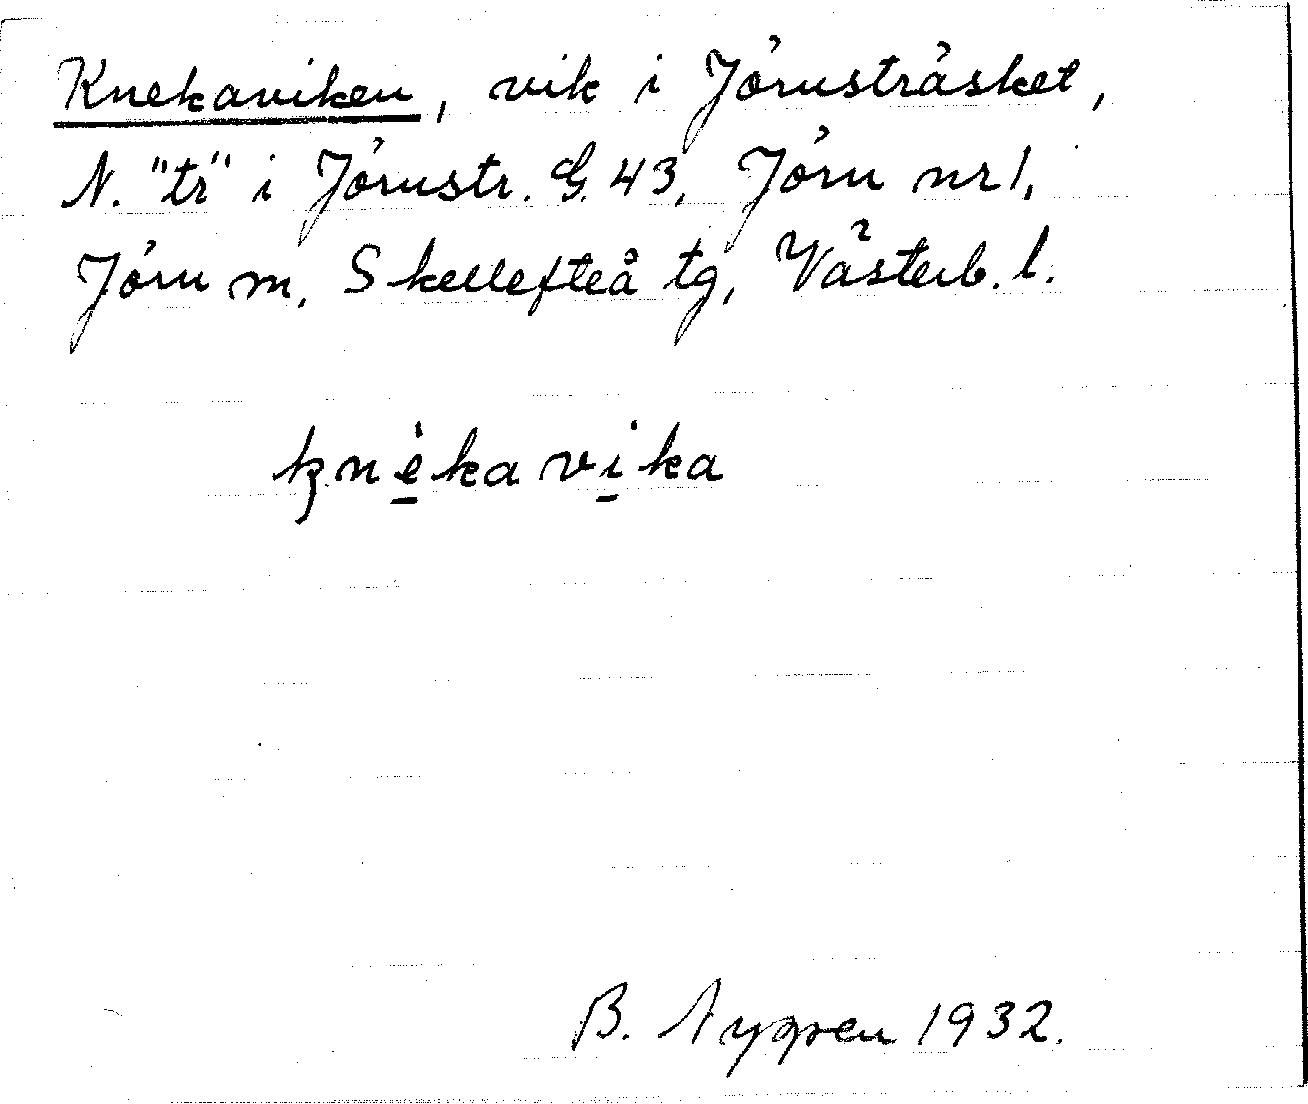 Knekaviken, vik i Jörnsträsket,
N. "tr" i Jörnstr. G. 43, Jörn nr 1,
Jörn sn, Skellefteå tg, Västerb. l.
knèkavika
B. Nygren 1932.